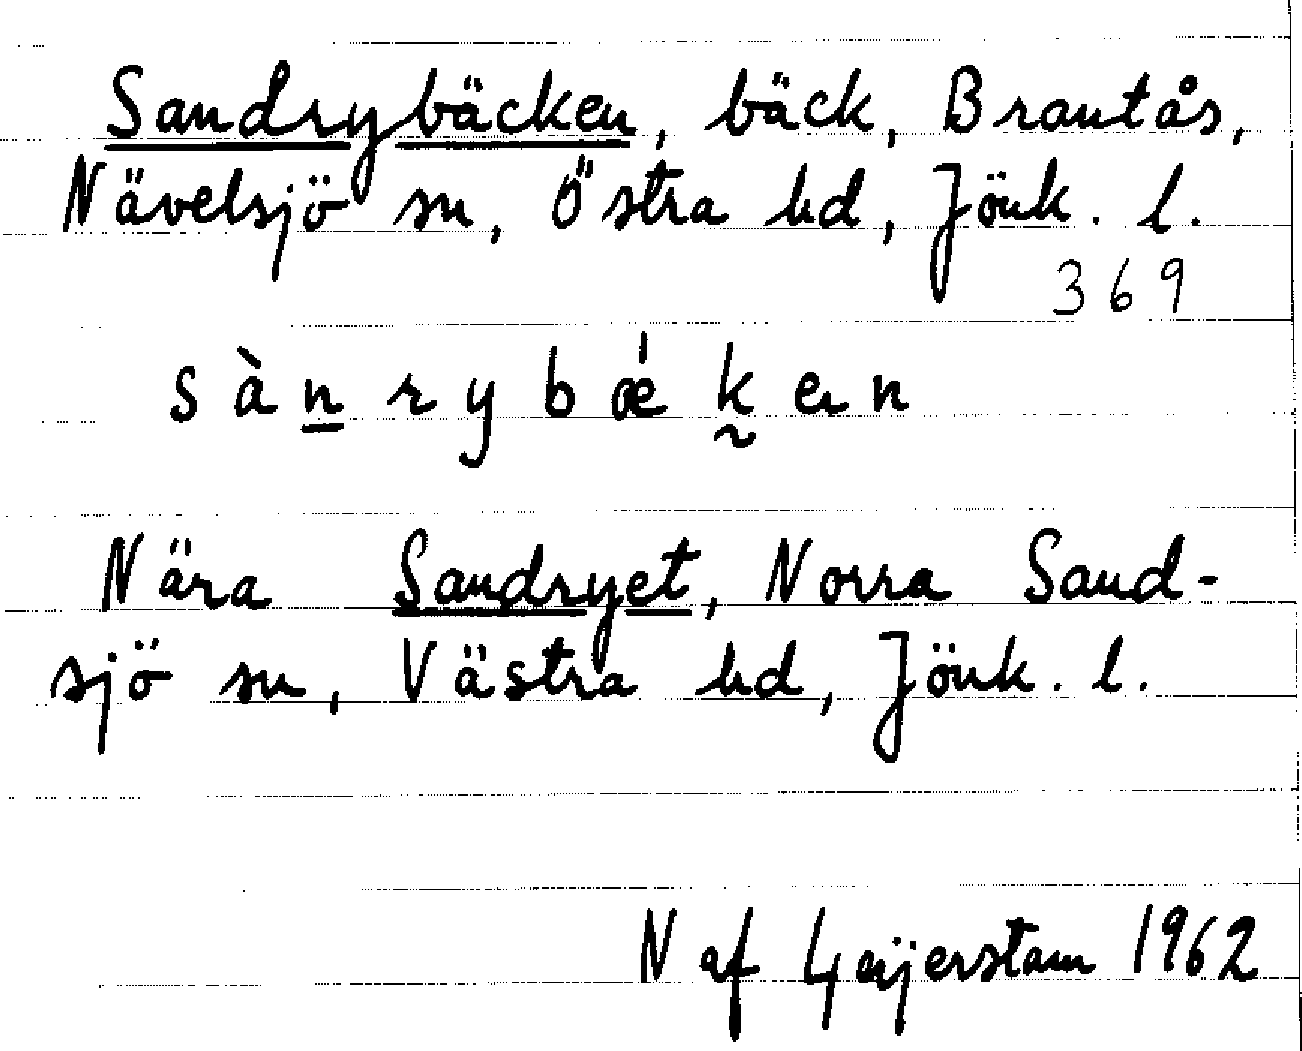 Sandrybäcken, bäck, Brantås,
Nävelsjö sn, Östra hd, Jönk. l.
369
sànrybǽk̰en
Nära Sandryet, Norra Sand-
sjö sn, Västra hd, Jönk. l.
N af Geijerstam 1962